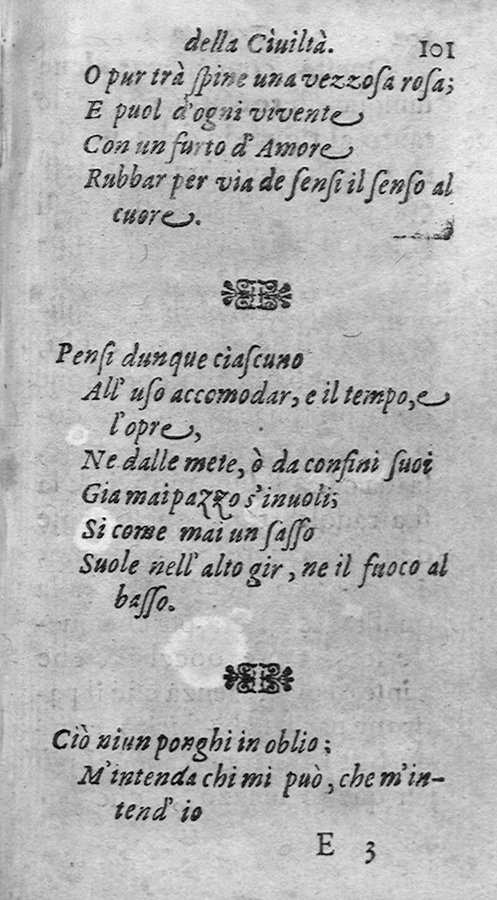 della Ciuiltà. 101
O pur trà ſpine una vezzoſa roſa;
E puol d'ogni vivente
Con un furto d'Amore
Rubbar per via de ſenſi il ſenſo al
cuore.
Penſi dunque ciaſcuno
All' uſo accomodar, e il tempo, e
l'opre,
Ne dalle mete, ò da confini ſuoi
Gia mai pazzo s'inuoli;
Si come mai un ſaſſo
Suole nell' alto gir, ne il fuoco al
baſſo.
Ciò niun ponghi in oblio;
M'intenda chi mi può, che m'in-
tend' io
E 3